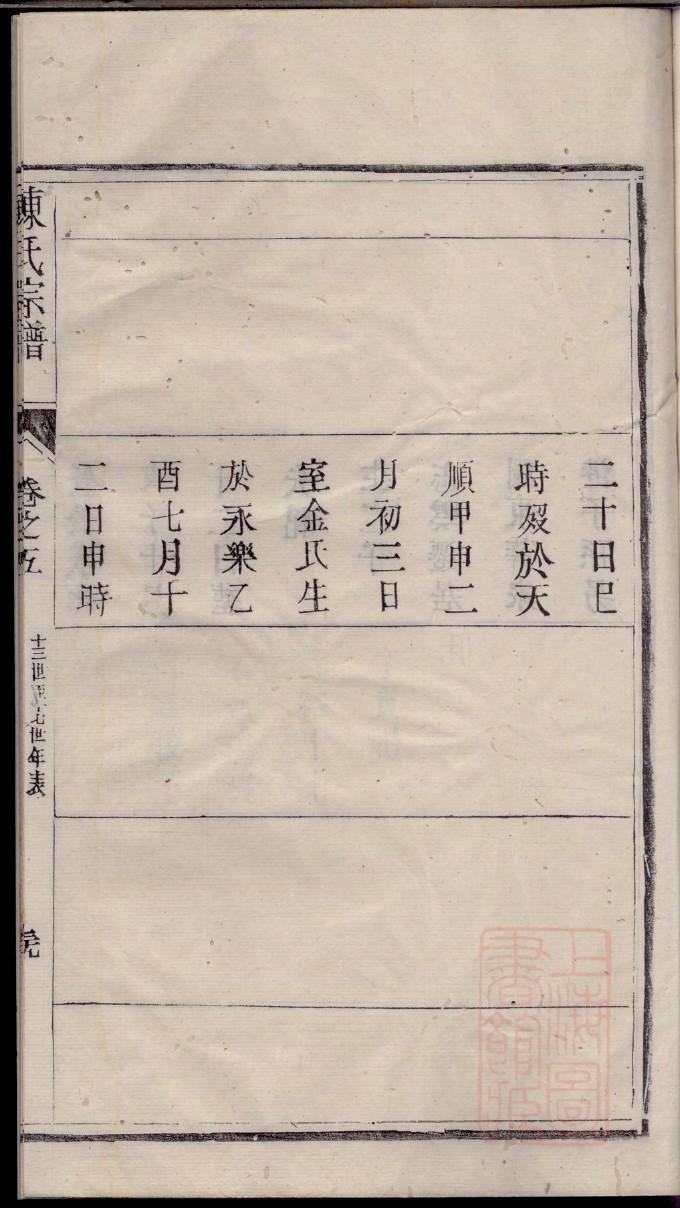 二十日巳
時歿於天
順甲申二
月初三日
室金氏生
於永樂乙
酉七月十
二日申時
陳氏宗譜
卷之五
十三世至十七世年表
上海圖
書館藏